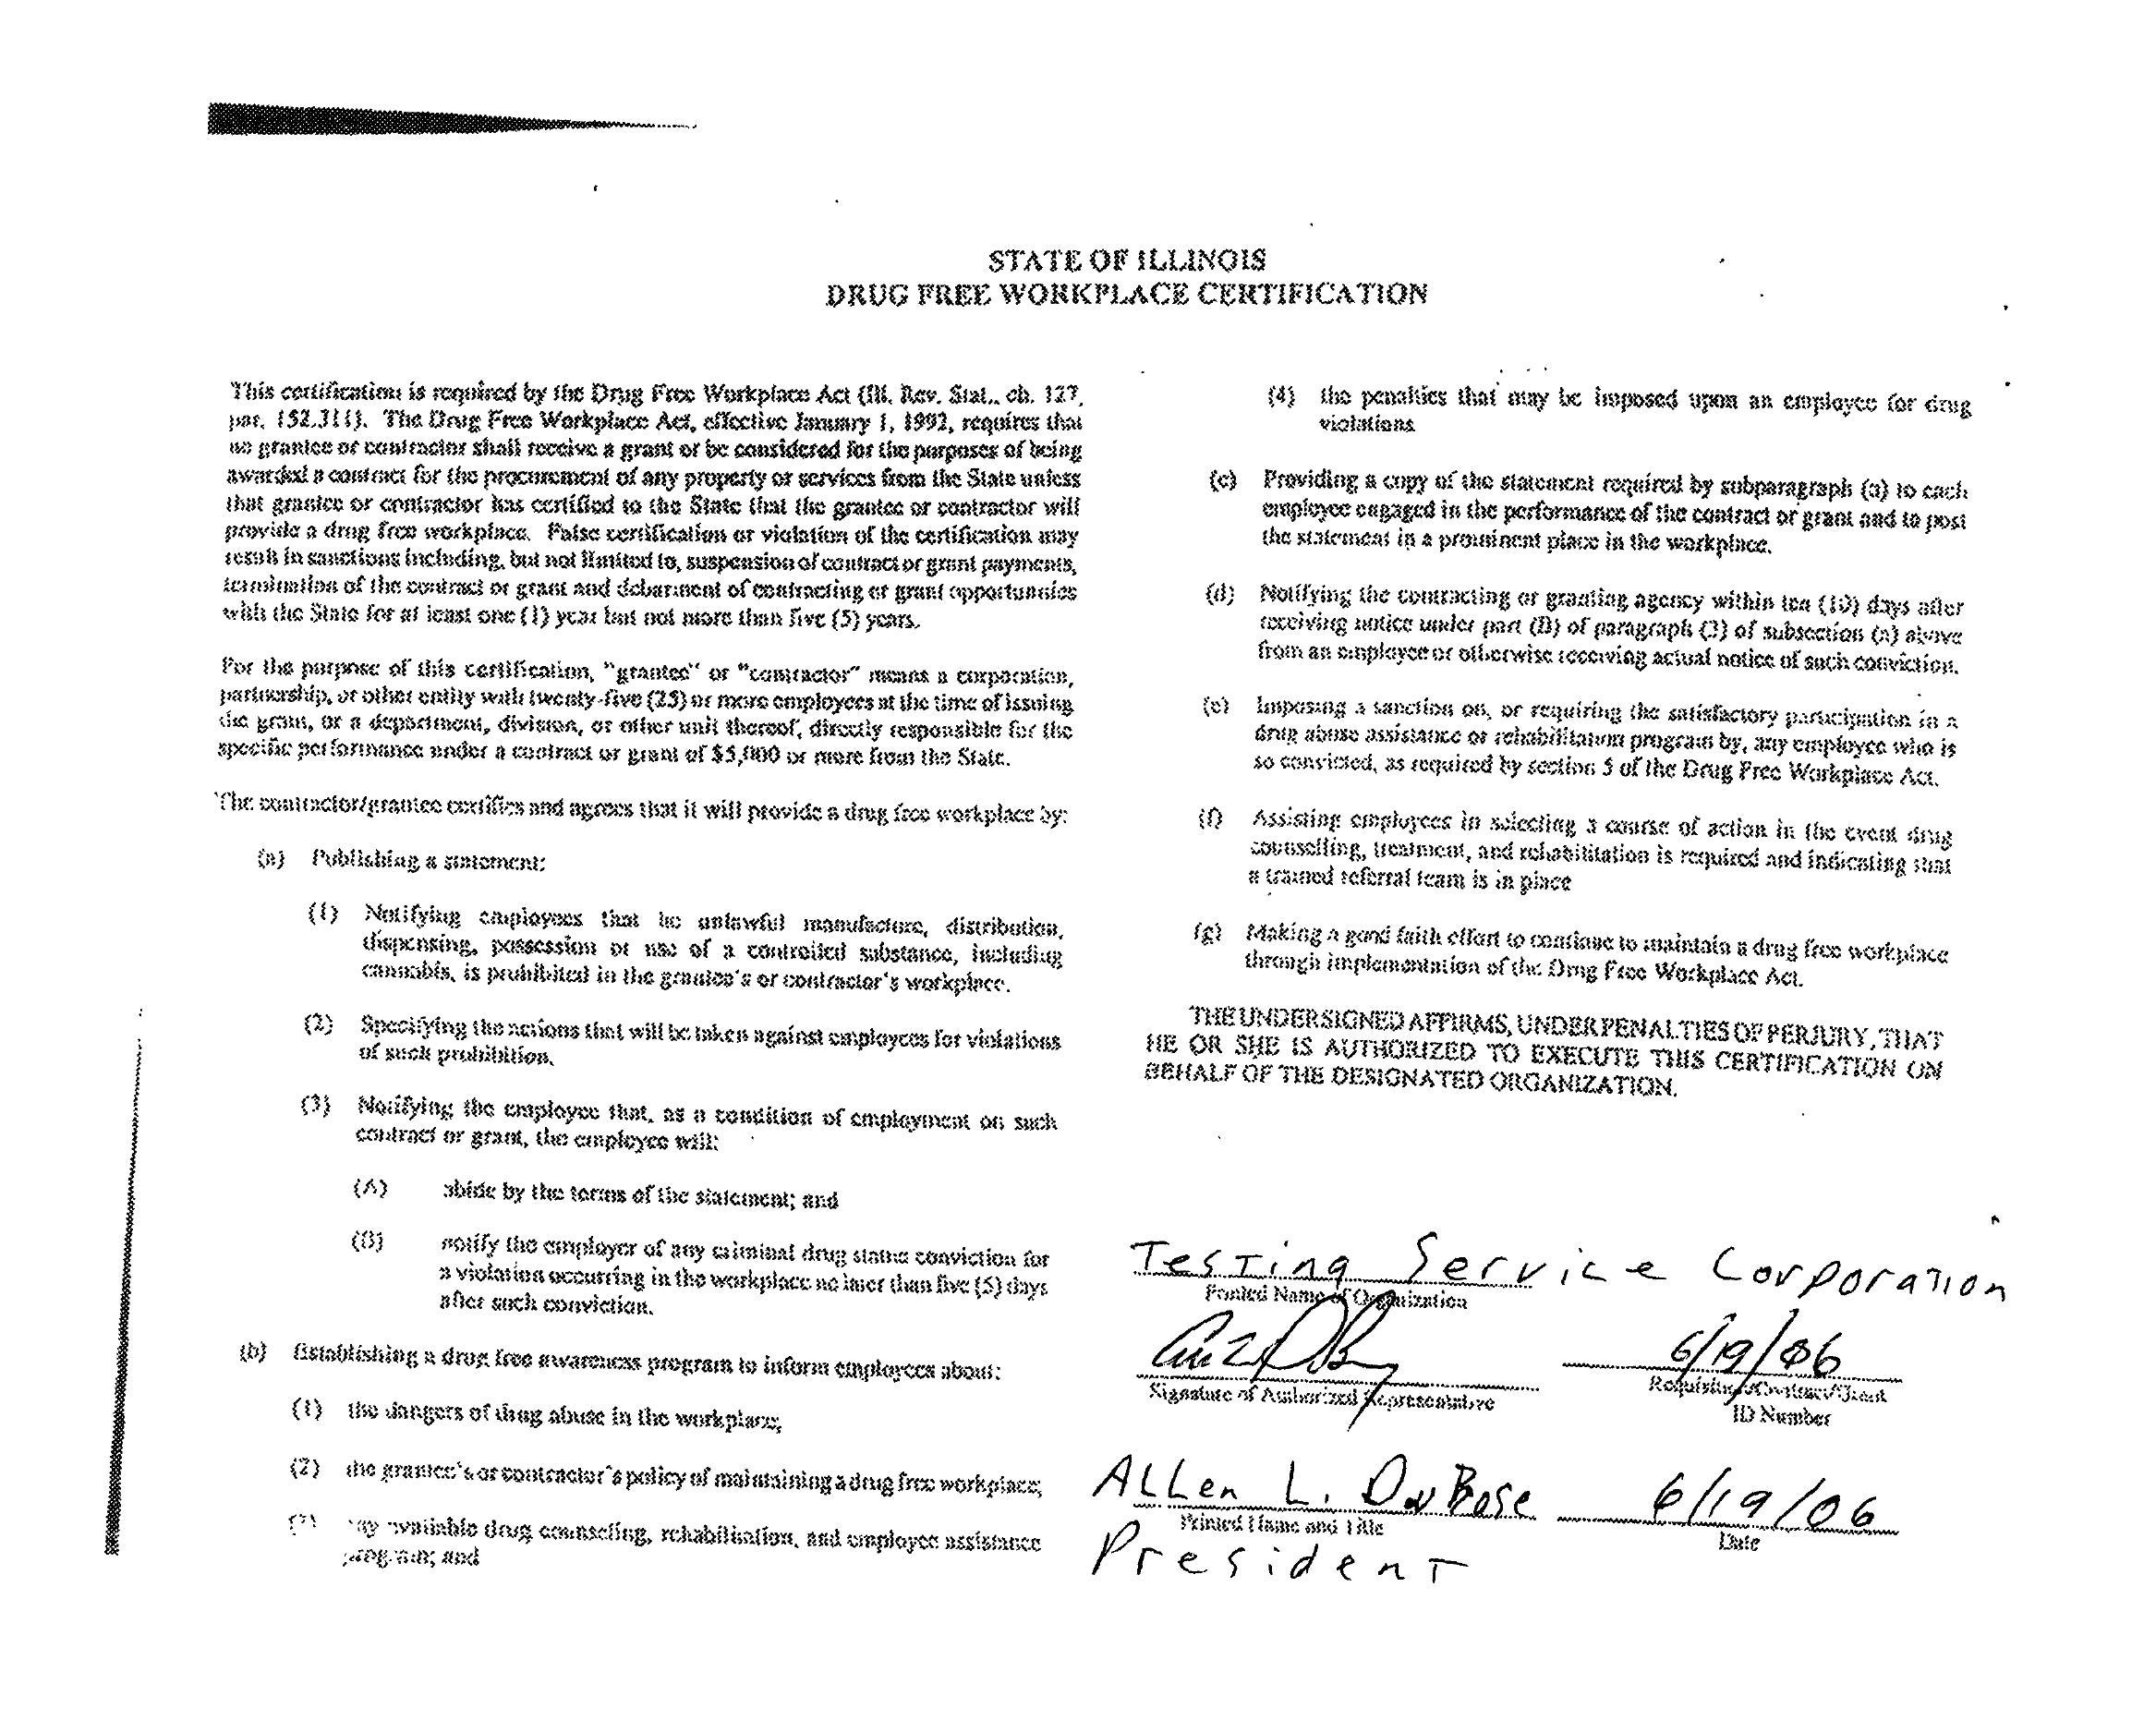 STATE OF ILLINOIS
DRUG FREE WORKPLACE CERTIFICATION
This certification is required by the Drug Free Workplace Act (Ill. Rev. Stat., ch. 127,
par. 152.311). The Drug Free Workplace Act, effective January 1, 1992, requires that
no grantee or contractor shall receive a grant or be considered for the purposes of being
awarded a contract for the procurement of any property or services from the State unless
that grantee or contractor has certified to the State that the grantee or contractor will
provide a drug free workplace. False certification or violation of the certification may
result in sanctions including, but not limited to, suspension of contract or grant payments,
termination of the contract or grant and debarment of contracting or grant opportunities
with the State for at least one (1) year but not more than five (5) years.
For the purpose of this certification, "grantee" or "contractor" means a corporation,
partnership, or other entity with twenty-five (25) or more employees at the time of issuing
the grant, or a department, division, or other unit thereof, directly responsible for the
specific performance under a contract or grant of $5,000 or more from the State.
The contractor/grantee certifies and agrees that it will provide a drug free workplace by:
(a) Publishing a statement:
(1) Notifying employees that he unlawful manufacture, distribution,
dispensing, possession or use of a controlled substance, including
cannabis, is prohibited in the grantee's or contractor's workplace.
(2) Specifying the actions that will be taken against employees for violations
of such prohibition.
(3) Notifying the employee that, as a condition of employment on such
contract or grant, the employee will:
(A) abide by the terms of the statement; and
(B) notify the employer of any criminal drug status conviction for
a violation occurring in the workplace no later than five (5) days
after such conviction.
(b) Establishing a drug free awareness program to inform employees about:
(1) the dangers of drug abuse in the workplace;
(2) the grantee's or contractor's policy of maintaining a drug free workplace;
available drug counseling, rehabilitation, and employee assistance
program; and
(4) the penalties that may be imposed upon an employee for drug
violations
(c) Providing a copy of the statement required by subparagraph (a) to each
employee engaged in the performance of the contract or grant and to post
the statement in a prominent place in the workplace.
(d) Notifying the contracting or granting agency within ten (10) days after
receiving notice under part (B) of paragraph (3) of subsection (a) above
from an employee or otherwise receiving actual notice of such conviction.
(e) Imposing a sanction on, or requiring the satisfactory participation in a
drug abuse assistance or rehabilitation program by, any employee who is
so convicted, as required by section 5 of the Drug Free Workplace Act.
(f) Assisting employees in selecting a course of action in the event drug
counselling, treatment, and rehabilitation is required and indicating that
a trained referral team is in place
(g) Making a good faith effort to continue to maintain a drug free workplace
through implementation of the Drug Free Workplace Act.
THE UNDERSIGNED AFFIRMS, UNDER PENALTIES OF PERJURY, THAT
HE OR SHE IS AUTHORIZED TO EXECUTE THIS CERTIFICATION ON
BEHALF OF THE DESIGNATED ORGANIZATION.
Testing Service Corporation
Printed Name of Organization
6/19/06
Signature of Authorized Representative
Requisition/Contract/Grant
ID Number
ALLen L. DuBose 6/19/06
Printed Name and Title
Date
President